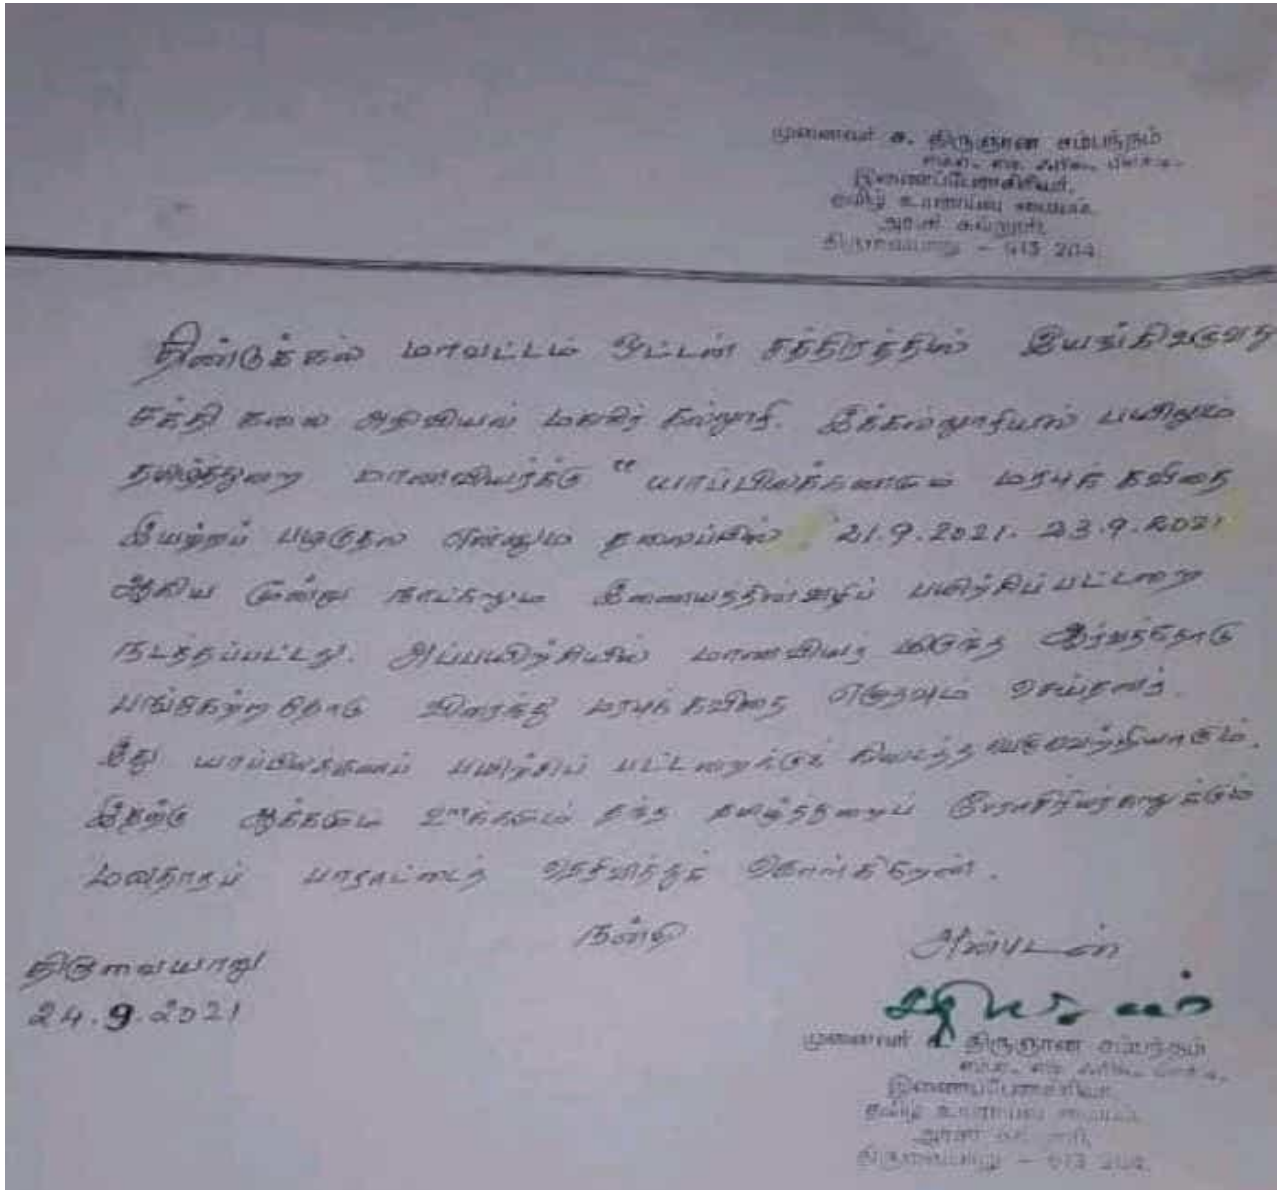 முனைவர் ச. திருஞான சம்பந்தம்
எம்.ஏ., எம்.ஃபில்., பிஎச்.டி.,
இணைப்பேராசிரியர்,
தமிழ் உயராய்வு மையம்,
அரசர் கல்லூரி,
திருவையாறு - 613 204.
திண்டுக்கல் மாவட்டம் ஒட்டன் சத்திரத்தில் இயங்கிவருவது
சக்தி கலை அறிவியல் மகளிர் கல்லூரி. இக்கல்லூரியில் பயிலும்
தமிழ்த்துறை மாணவியர்க்கு "யாப்பிலக்கணமும் மரபுக் கவிதை
இயற்றப் பழகுதல் என்னும் தலைப்பில் 21.9.2021. 23.9.2021
ஆகிய மூன்று நாட்களும் இணையத்தின்வழிப் பயிற்சிப் பட்டறை
நடத்தப்பட்டது. அப்பயிற்சியில் மாணவியர் மிகுந்த ஆர்வத்தோடு
பங்கேற்றதோடு விரைந்து மரபுக் கவிதை எழுதவும் செய்தனர்.
இது யாப்பிலக்கணப் பயிற்சிப் பட்டறைக்குக் கிடைத்த வெற்றியாகும்.
இதற்கு ஆக்கமும் ஊக்கமும் தந்த தமிழ்த்துறைப் பேராசிரியர்களுக்கும்
மனதாரப் பாராட்டைத் தெரிவித்துக் கொள்கிறேன்.
நன்றி
அன்புடன்
திருவையாறு
24.9.2021
முனைவர் ச. திருஞான சம்பந்தம்
எம்.ஏ., எம்.ஃபில்., பிஎச்.டி.,
இணைப்பேராசிரியர்,
தமிழ் உயராய்வு மையம்,
அரசர் கல்லூரி,
திருவையாறு - 613 204.